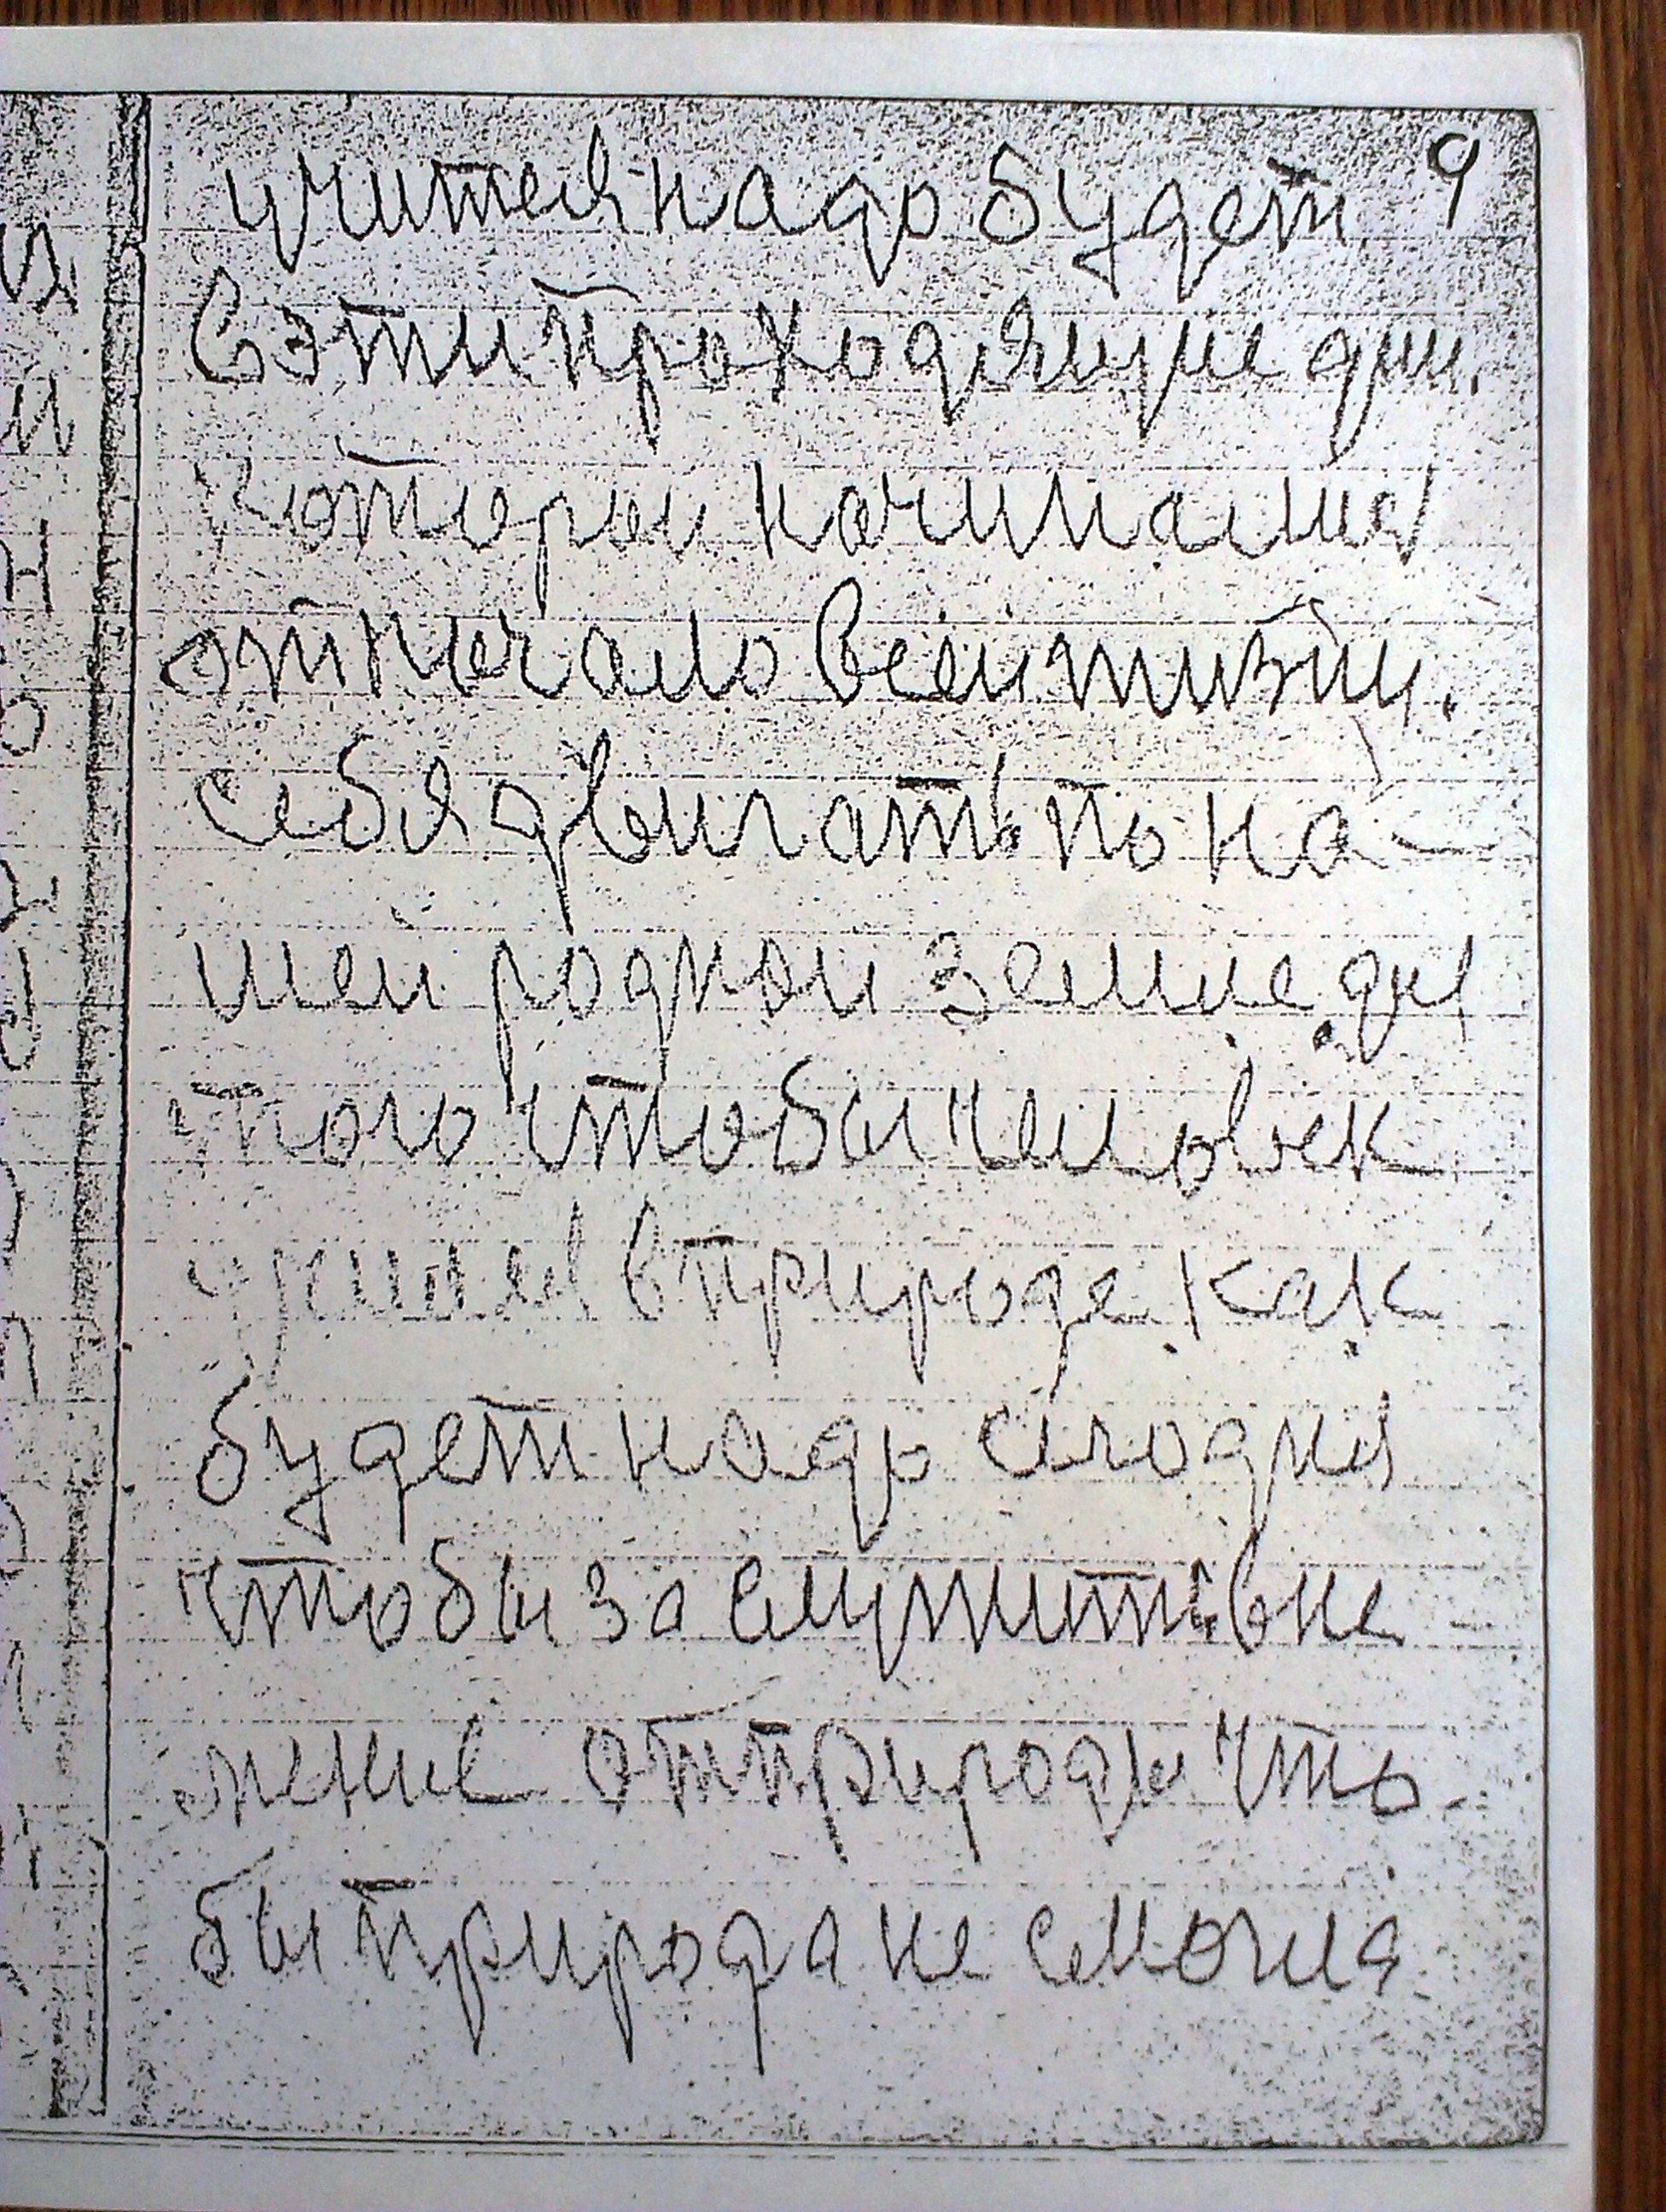 учител надо будет 9
в эти проходящие дни.
которые начинания
от начало всей жизни.
себя двигать по на-
шей родной земле для
того чтобы человек
в природе как
будет надо сегодня
чтобы заслужить вне-
жение от природы что
бы природа не смогла